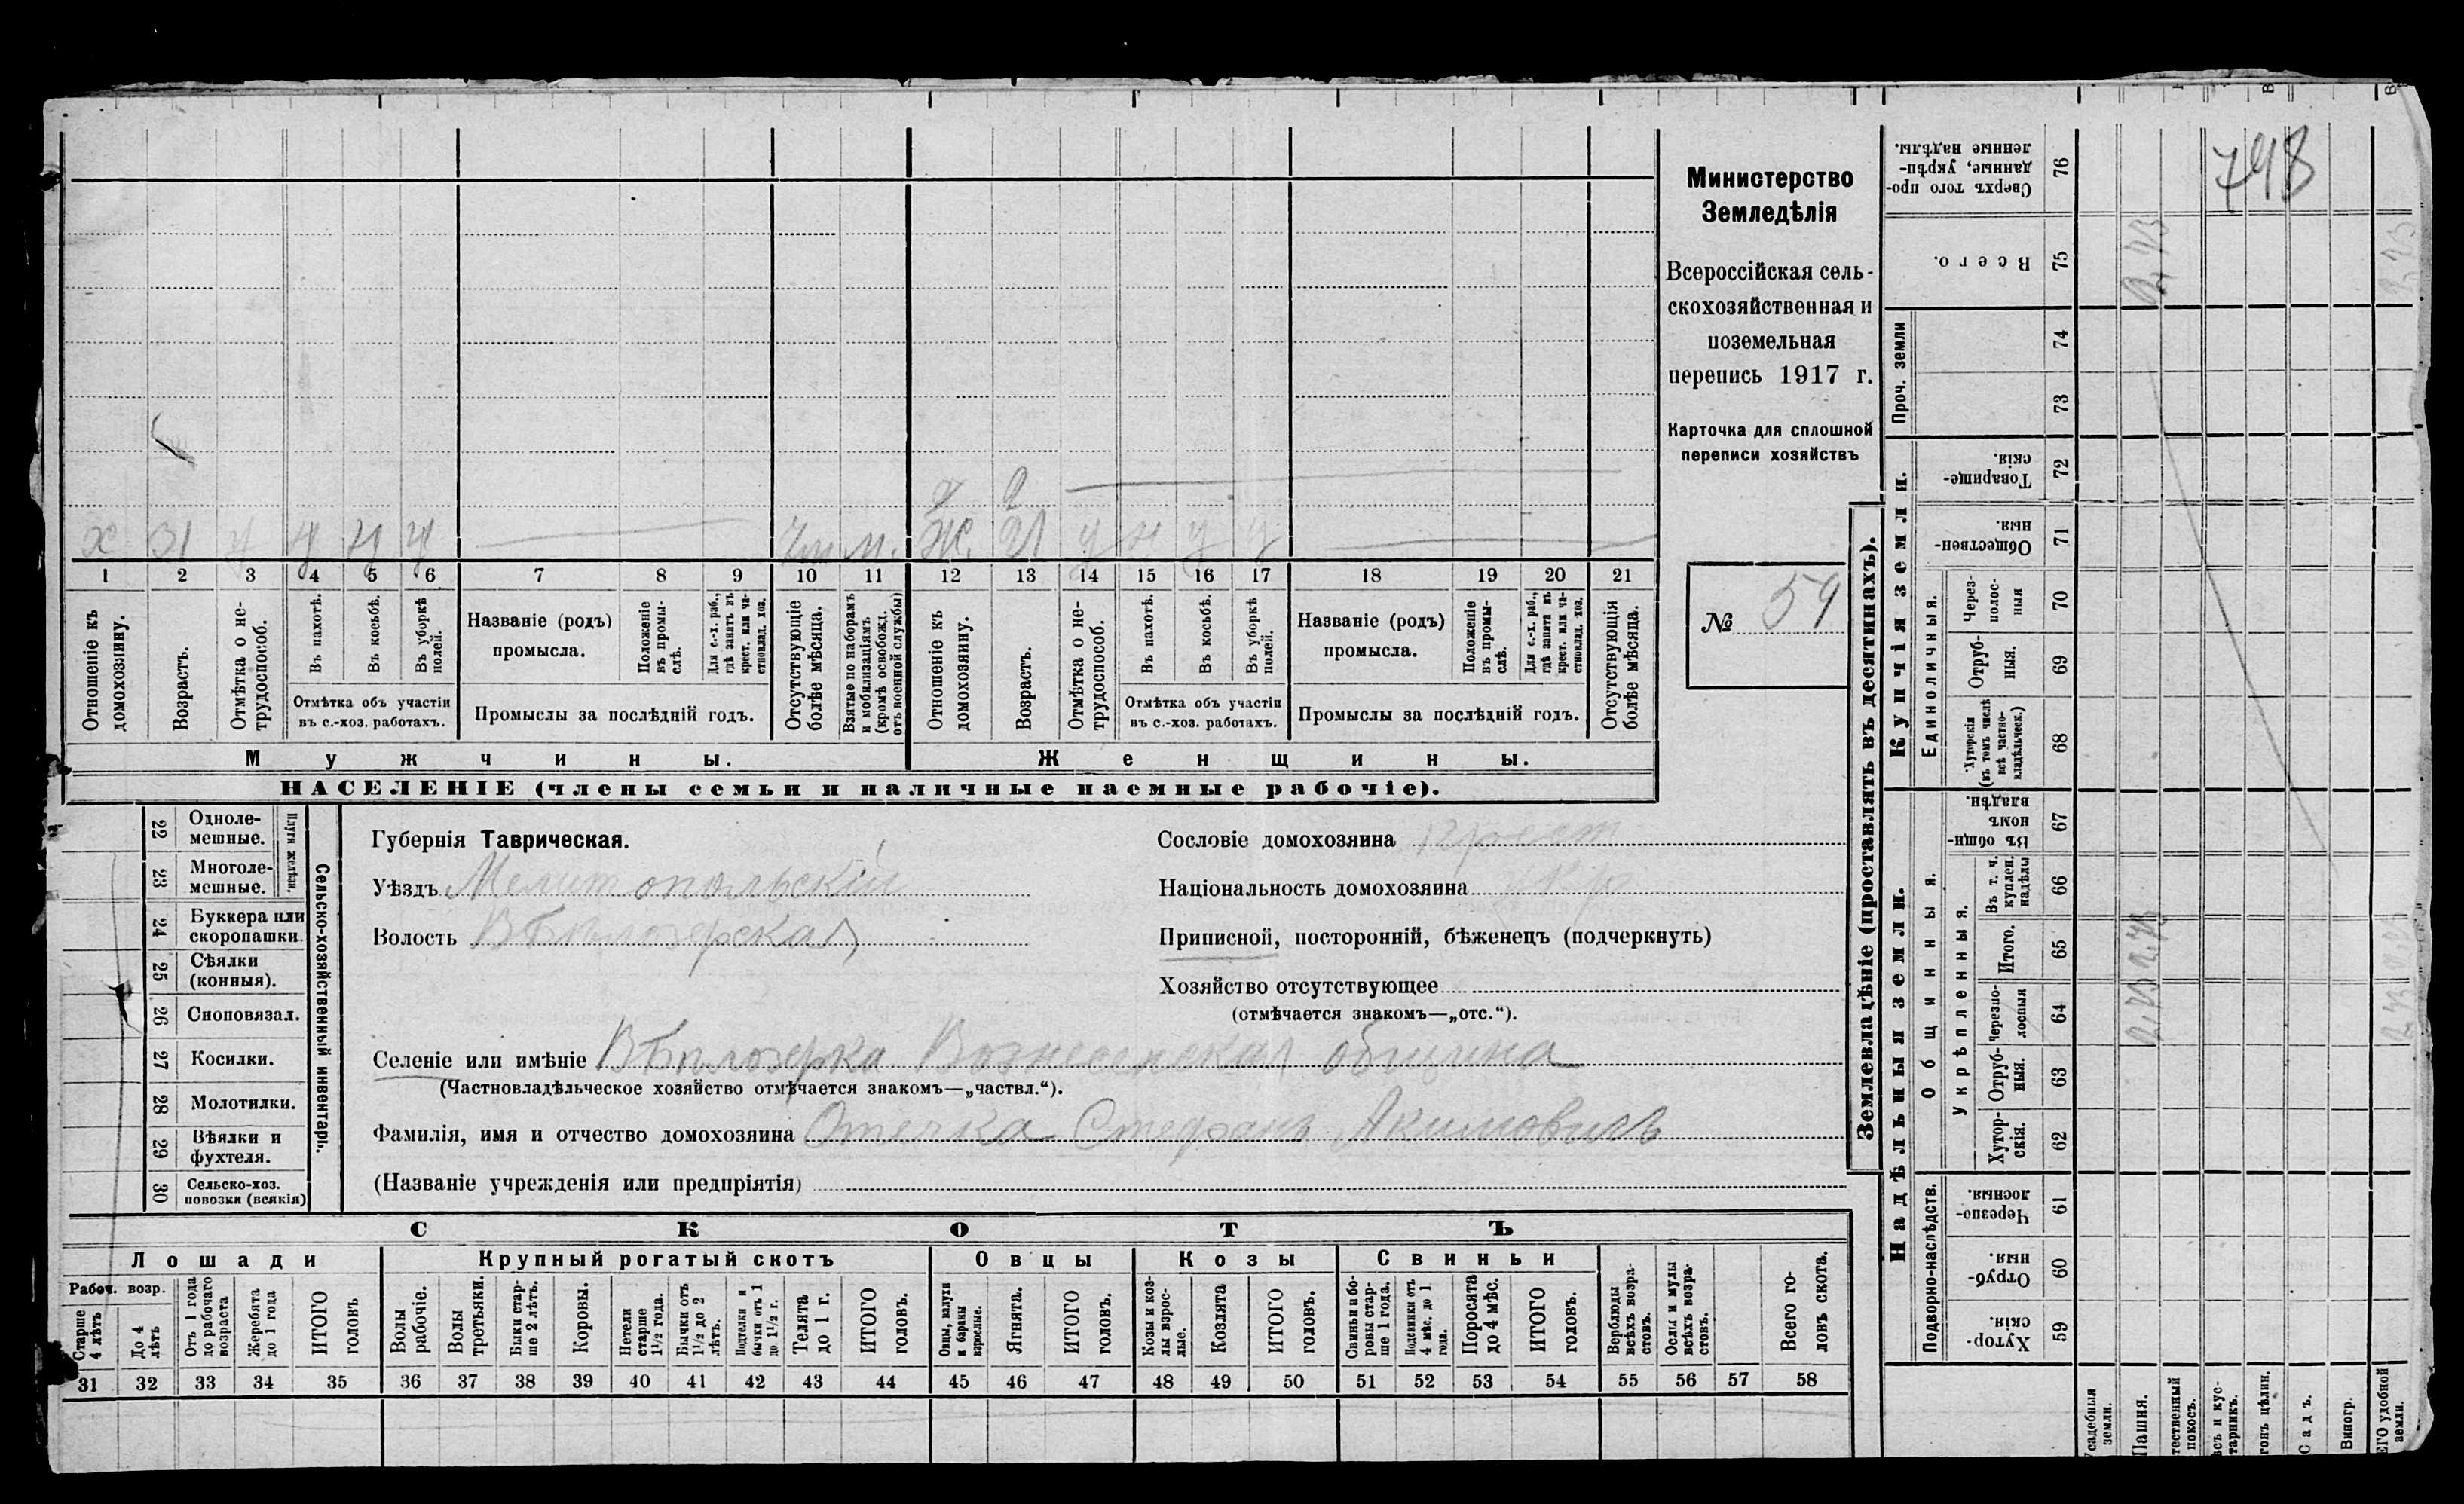 Министерство
Земледѣлія
Всероссійская сель-
скохозяйственная и
поземельная
перепись 1917 г.
Карточка для сплошной
переписи хозяйствъ
№ 59
748
х 31 ч ч ч
м. Ж. 21 ч н ч ч
1 2 3 4 5 6 7 8 9 10 11 12 13 14 15 16 17 18 19 20 21
Отношеніе къ домохозяину.
Возрастъ.
Отмѣтка о не-трудоспособ.
Въ пахотѣ.
Въ косьбѣ.
Въ уборкѣ полей.
Отмѣтка объ участіи
въ с.-хоз. работахъ.
Названіе (родъ)
промысла.
Положеніе въ промы-слѣ.
Для с.-х. раб., гдѣ занятъ въ крест. или ча-стновлад. хоз.
Промыслы за послѣдній годъ.
Отсутствующіе болѣе мѣсяца.
Взятые по наборамъ и мобилизаціямъ (кромѣ освобожд. отъ военной службы)
Отношеніе къ домохозяину.
Возрастъ.
Отмѣтка о не-трудоспособ.
Въ пахотѣ.
Въ косьбѣ.
Въ уборкѣ полей.
Отмѣтка объ участіи
въ с.-хоз. работахъ.
Названіе (родъ)
промысла.
Положеніе въ промы-слѣ.
Для с.-х. раб., гдѣ заняты въ крест. или ча-стновлад. хоз.
Промыслы за послѣдній годъ.
Отсутствующія болѣе мѣсяца.
Мужчины.
Женщины.
НАСЕЛЕНІЕ (члены семьи и наличные наемные рабочіе).
22 Одноле-мешные.
23 Многоле-мешные.
Плуги желѣзн.
24 Буккера или скоропашки
25 Сѣялки (конныя).
26 Сноповязал.
27 Косилки.
28 Молотилки.
29 Вѣялки и фухтеля.
30 Сельско-хоз. повозки (всякія)
Сельско-хозяйственный инвентарь.
Губернія Таврическая.
Уѣздъ Мелитопольскій
Волость В Бѣлозерская
Селеніе или имѣніе В Бѣлозерка Вознесенская община
(Частновладѣльческое хозяйство отмѣчается знакомъ—„частвл.“).
Фамилія, имя и отчество домохозяина Отечка Стефанъ Акимовичъ
(Названіе учрежденія или предпріятія)
Сословіе домохозяина крест
Національность домохозяина укр
Приписной, посторонній, бѣженецъ (подчеркнуть)
Хозяйство отсутствующее
(отмѣчается знакомъ—„отс.“).
СКОТЪ
Лошади
Крупный рогатый скотъ
Овцы
Козы
Свиньи
Рабоч. возр.
Старше 4 лѣтъ
До 4 лѣтъ
Отъ 1 года до рабочаго возраста
Жеребята до 1 года
ИТОГО головъ
Волы рабочіе.
Волы третьяки.
Быки стар-ше 2 лѣтъ.
Коровы.
Нетели старше 1½ года.
Бычки отъ 1½ до 2 лѣтъ.
Подтелки и бычки отъ 1 до 1½ г.
Телята до 1 г.
ИТОГО головъ.
Овцы, валухи и бараны взрослые.
Ягнята.
ИТОГО головъ.
Козы и коз-лы взрос-лые.
Козлята
ИТОГО головъ.
Свиньи и бо-ровы стар-ше 1 года.
Подсвинки отъ 4 мѣс. до 1 года.
Поросята до 4 мѣс.
ИТОГО головъ.
Верблюды всѣхъ возра-стовъ.
Ослы и мулы всѣхъ возра-стовъ.
Всего го-ловъ скота.
31 32 33 34 35 36 37 38 39 40 41 42 43 44 45 46 47 48 49 50 51 52 53 54 55 56 57 58
Землевладѣніе (проставлять въ десятинахъ).
Купчія земли.
Надѣльныя земли.
Проч. земли
Единоличныя.
Общинныя.
Укрѣпленныя.
Подворно-наслѣдств.
Сверхъ того про-данные, укрѣп-ленные надѣлы. 76
Всего. 75
74
73
Товарище-скія. 72
Обществен-ныя. 71
Через-полос-ныя 70
Отруб-ныя. 69
Хуторскія (въ томъ числѣ всѣ частно-владѣльческ.) 68
Въ общи-номъ владѣн. 67
Въ т. ч. куплен. надѣлы 66
Итого. 65
Черезпо-лосныя 64
Отруб-ныя. 63
Хутор-скія. 62
Черезпо-лосныя. 61
Отруб-ныя. 60
Хутор-скія. 59
садебныя земли.
Пашня.
тественный покосъ.
ѣсъ и кус-тарникъ.
гонъ цѣлин.
Садъ.
Виногр.
ЕГО удобной земли.